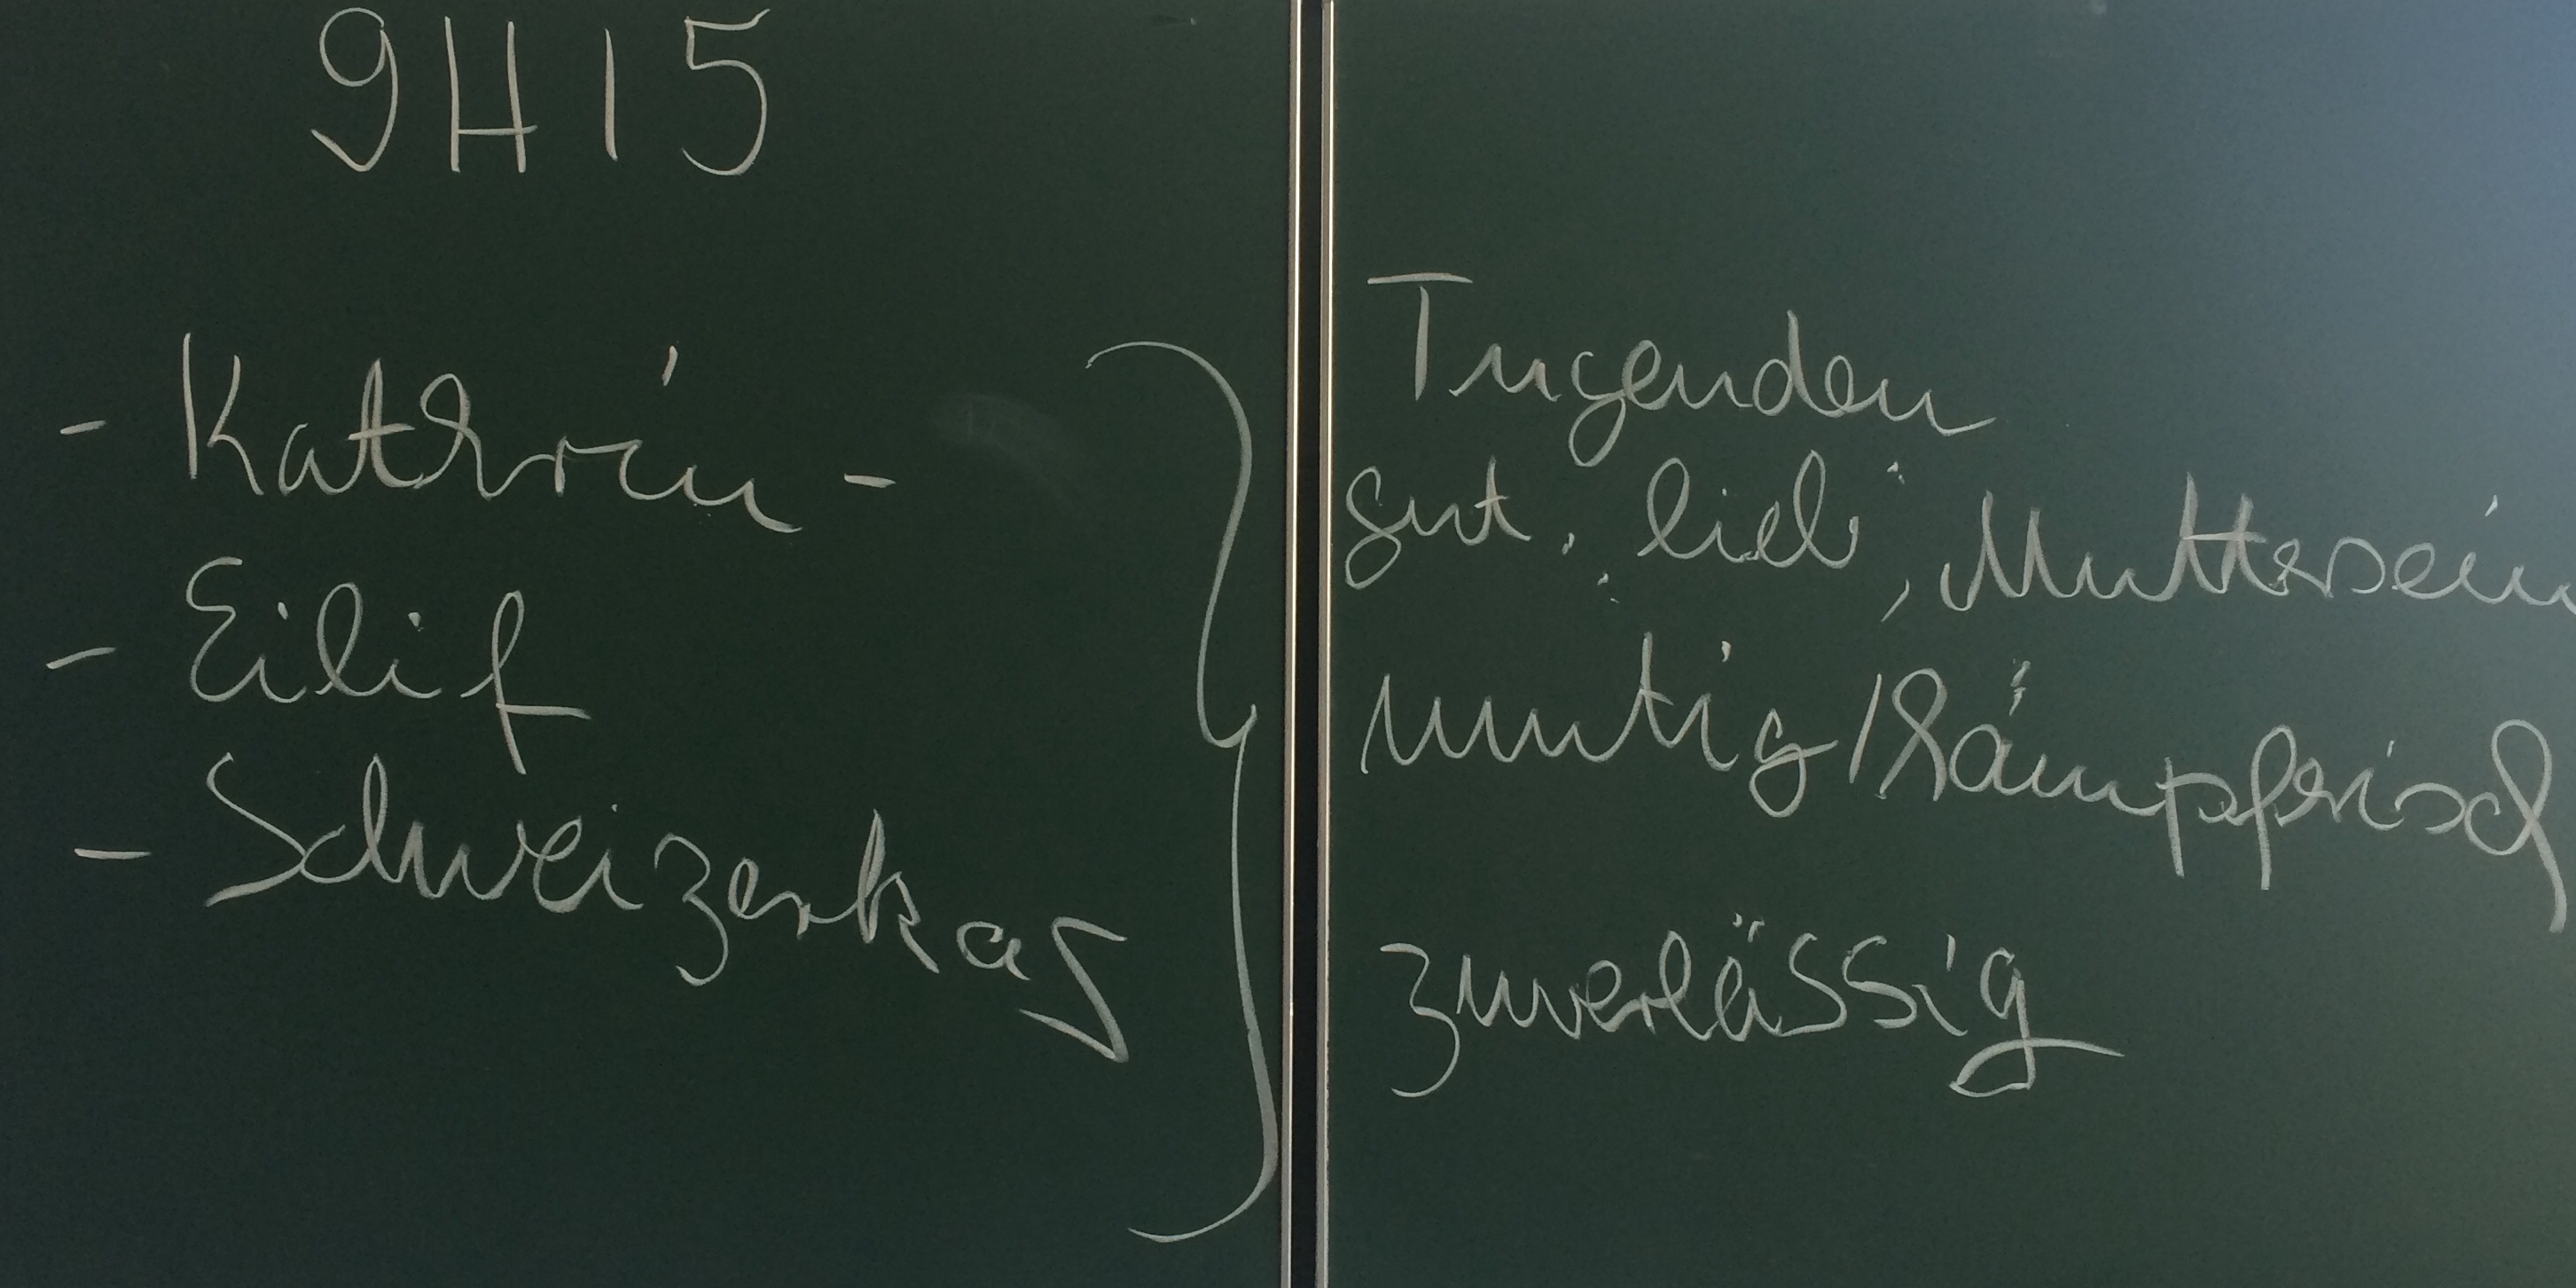 9H15
- Kathrin -
- Eilif
- Schweizerkas
Tugenden
gut, lieb, Muttersein
mutig/kämpferisch
zuverlässig